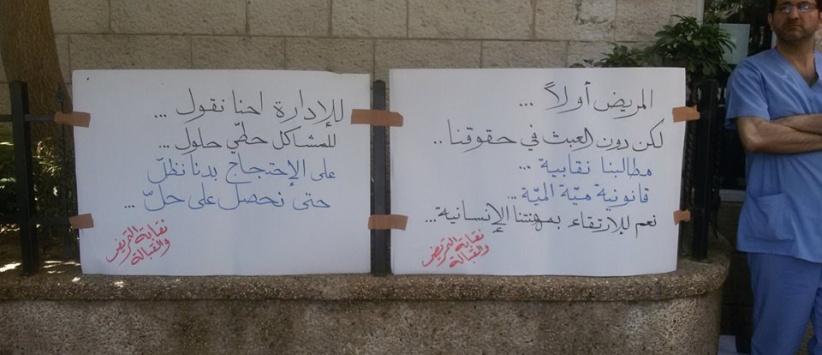 المريض أولاً ...
لكن دون العبث في حقوقنا ..
مطالبنا نقابية ...
قانونية ميّة الميّة ...
نعم للإرتقاء بمهنتنا الإنسانية ...
نقابة التمريض
والقبالة
للإدارة احنا نقول ...
للمشاكل حطّي حلول ...
على الإحتجاج بدنا نظلّ
حتى نحصل على حلّ ...
نقابة التمريض
والقبالة